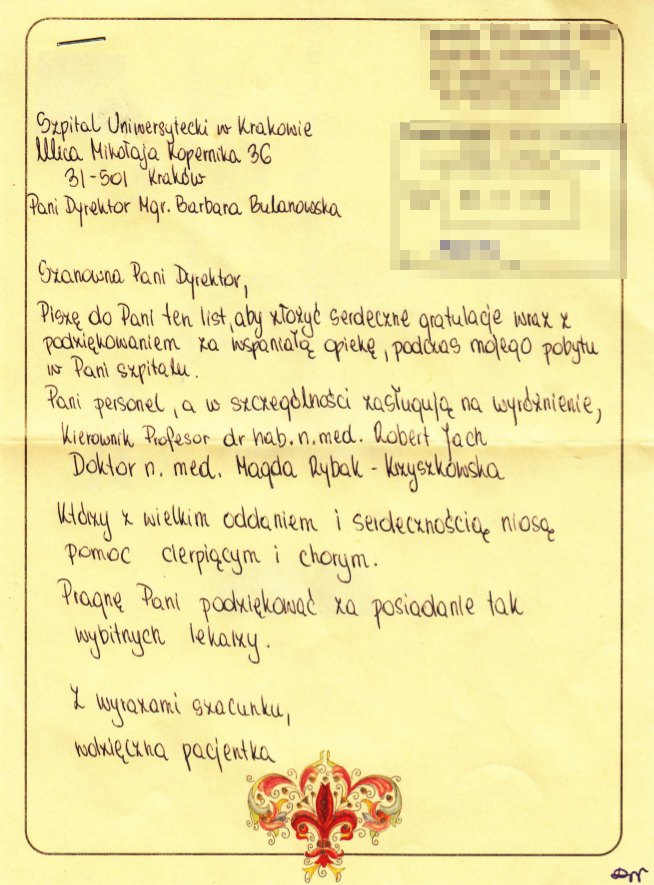 Szpital Uniwersytecki w Krakowie
Ulica Mikołaja Kopernika 36
31-501 Kraków
Pani Dyrektor Mgr. Barbara Bulanowska
Szanowna Pani Dyrektor,
Piszę do Pani ten list, aby złożyć serdeczne gratulacje wraz z
podziękowaniem za wspaniałą opiekę, podczas mojego pobytu
w Pani szpitalu.
Pani personel, a w szczególności zasługują na wyróżnienie,
Kierownik Profesor dr hab. n. med. Robert Jach
Doktor n. med. Magda Rybak - Krzyszkowska
Którzy z wielkim oddaniem i serdecznością niosą
pomoc cierpiącym i chorym.
Pragnę Pani podziękować za posiadanie tak
wybitnych lekarzy.
Z wyrazami szacunku,
wdzięczna pacjentka